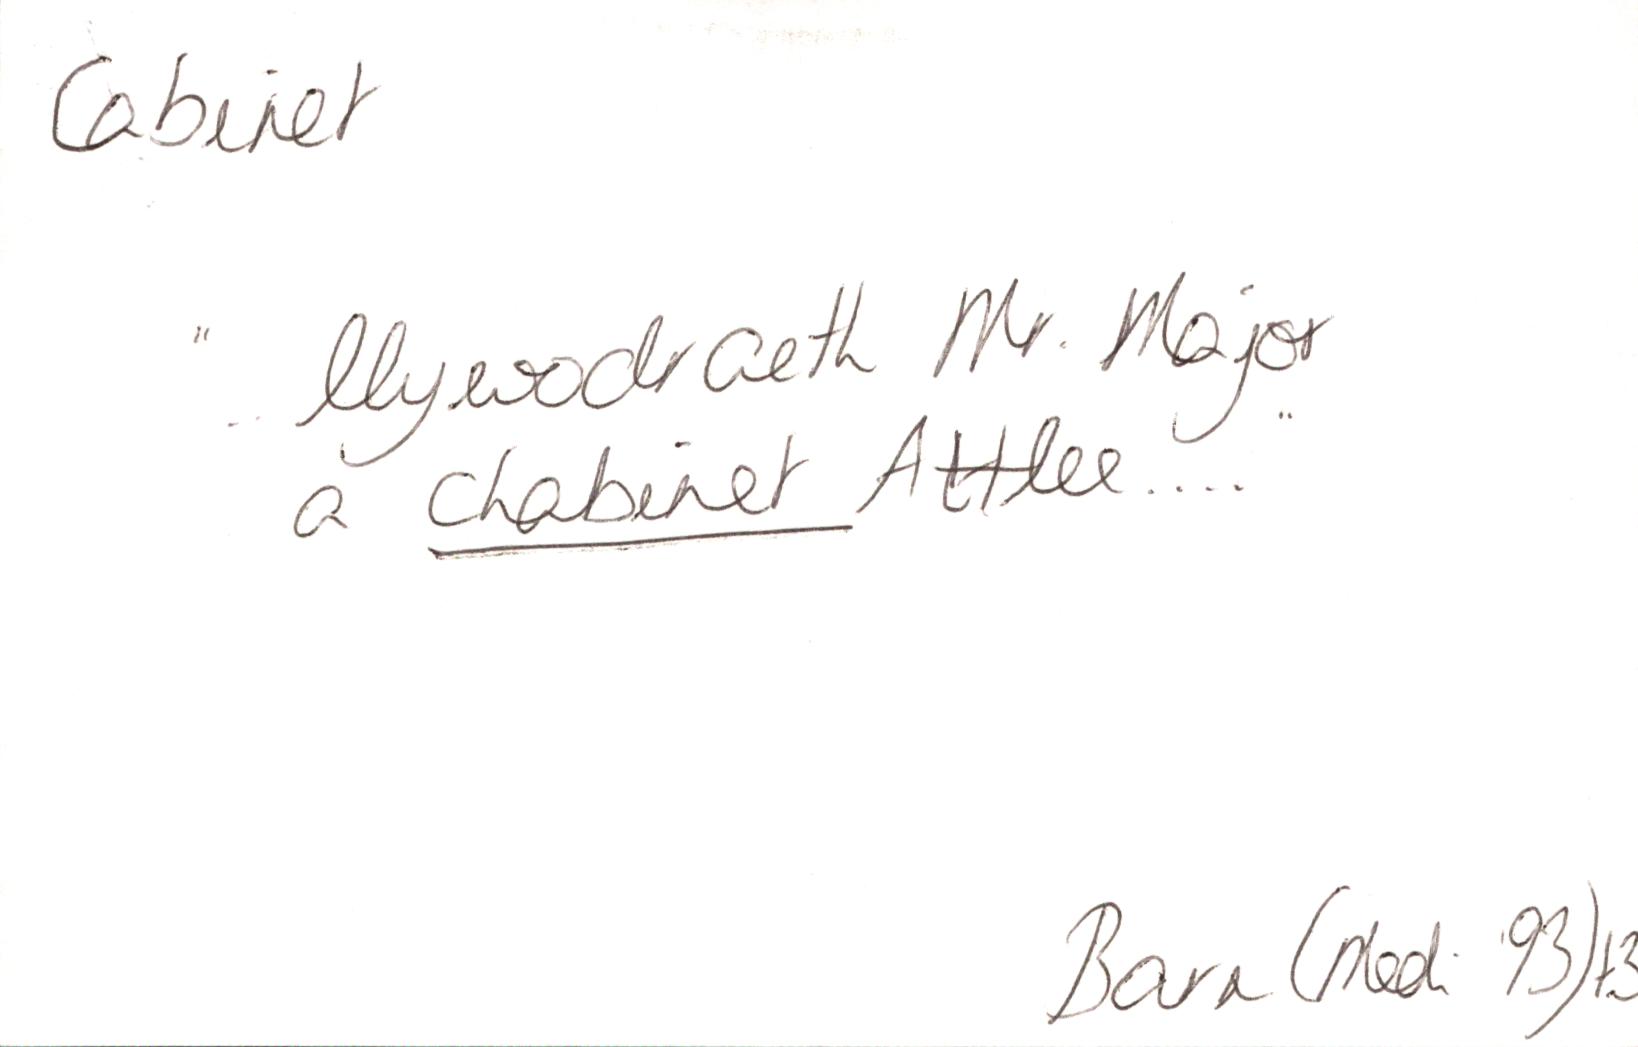 Cabinet
"..llywodraeth Mr. Major
a chabinet Attlee...."
Barn (Medi '93) t3